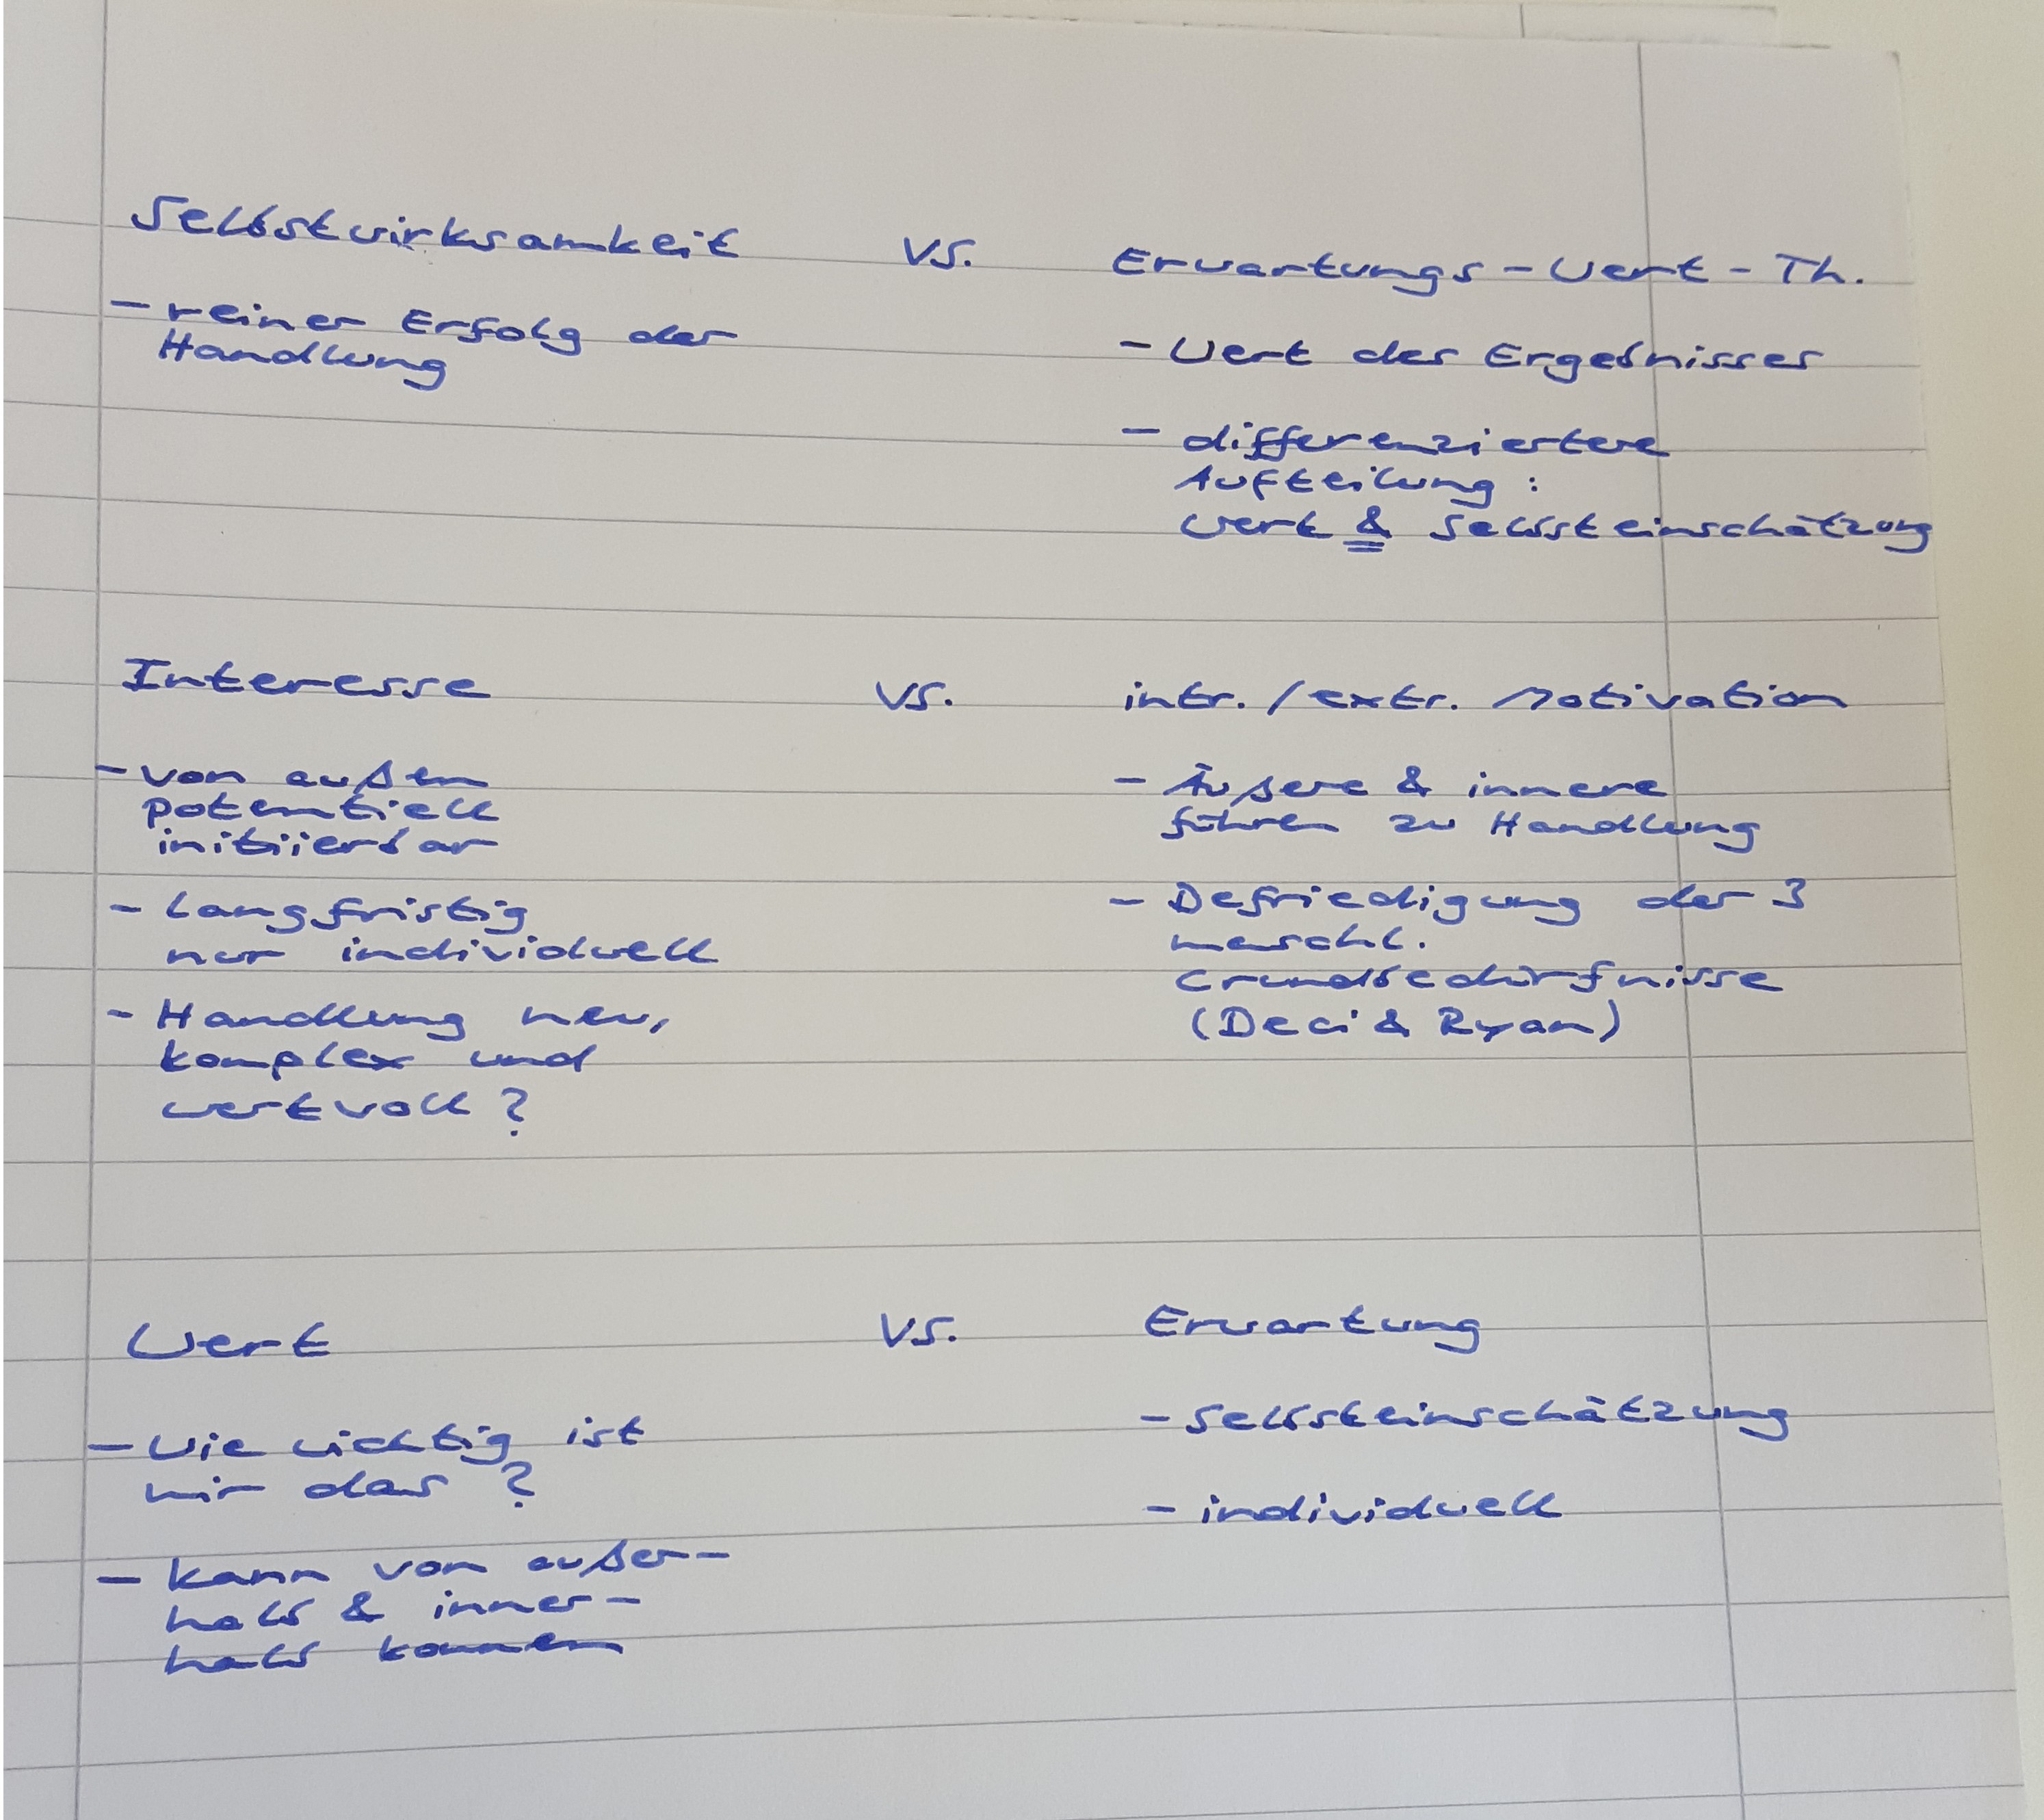 Selbstwirksamkeit vs. Erwartungs-Wert-Th.
- reiner Erfolg der
Handlung
- Wert des Ergebnisses
- differenziertere
Aufteilung :
Wert & Selbsteinschätzung
Interesse vs. intr. / extr. Motivation
- von außen
potentiell
initiierbar
- langfristig
nur individuell
- Handlung neu,
komplex und
wertvoll ?
- Äußere & innere
führen zu Handlung
- Befriedigung der 3
menschl.
Grundbedürfnisse
(Deci & Ryan)
Wert vs. Erwartung
- Wie wichtig ist
mir das ?
- kann von außer-
halb & inner-
halb kommen
- Selbsteinschätzung
- individuell